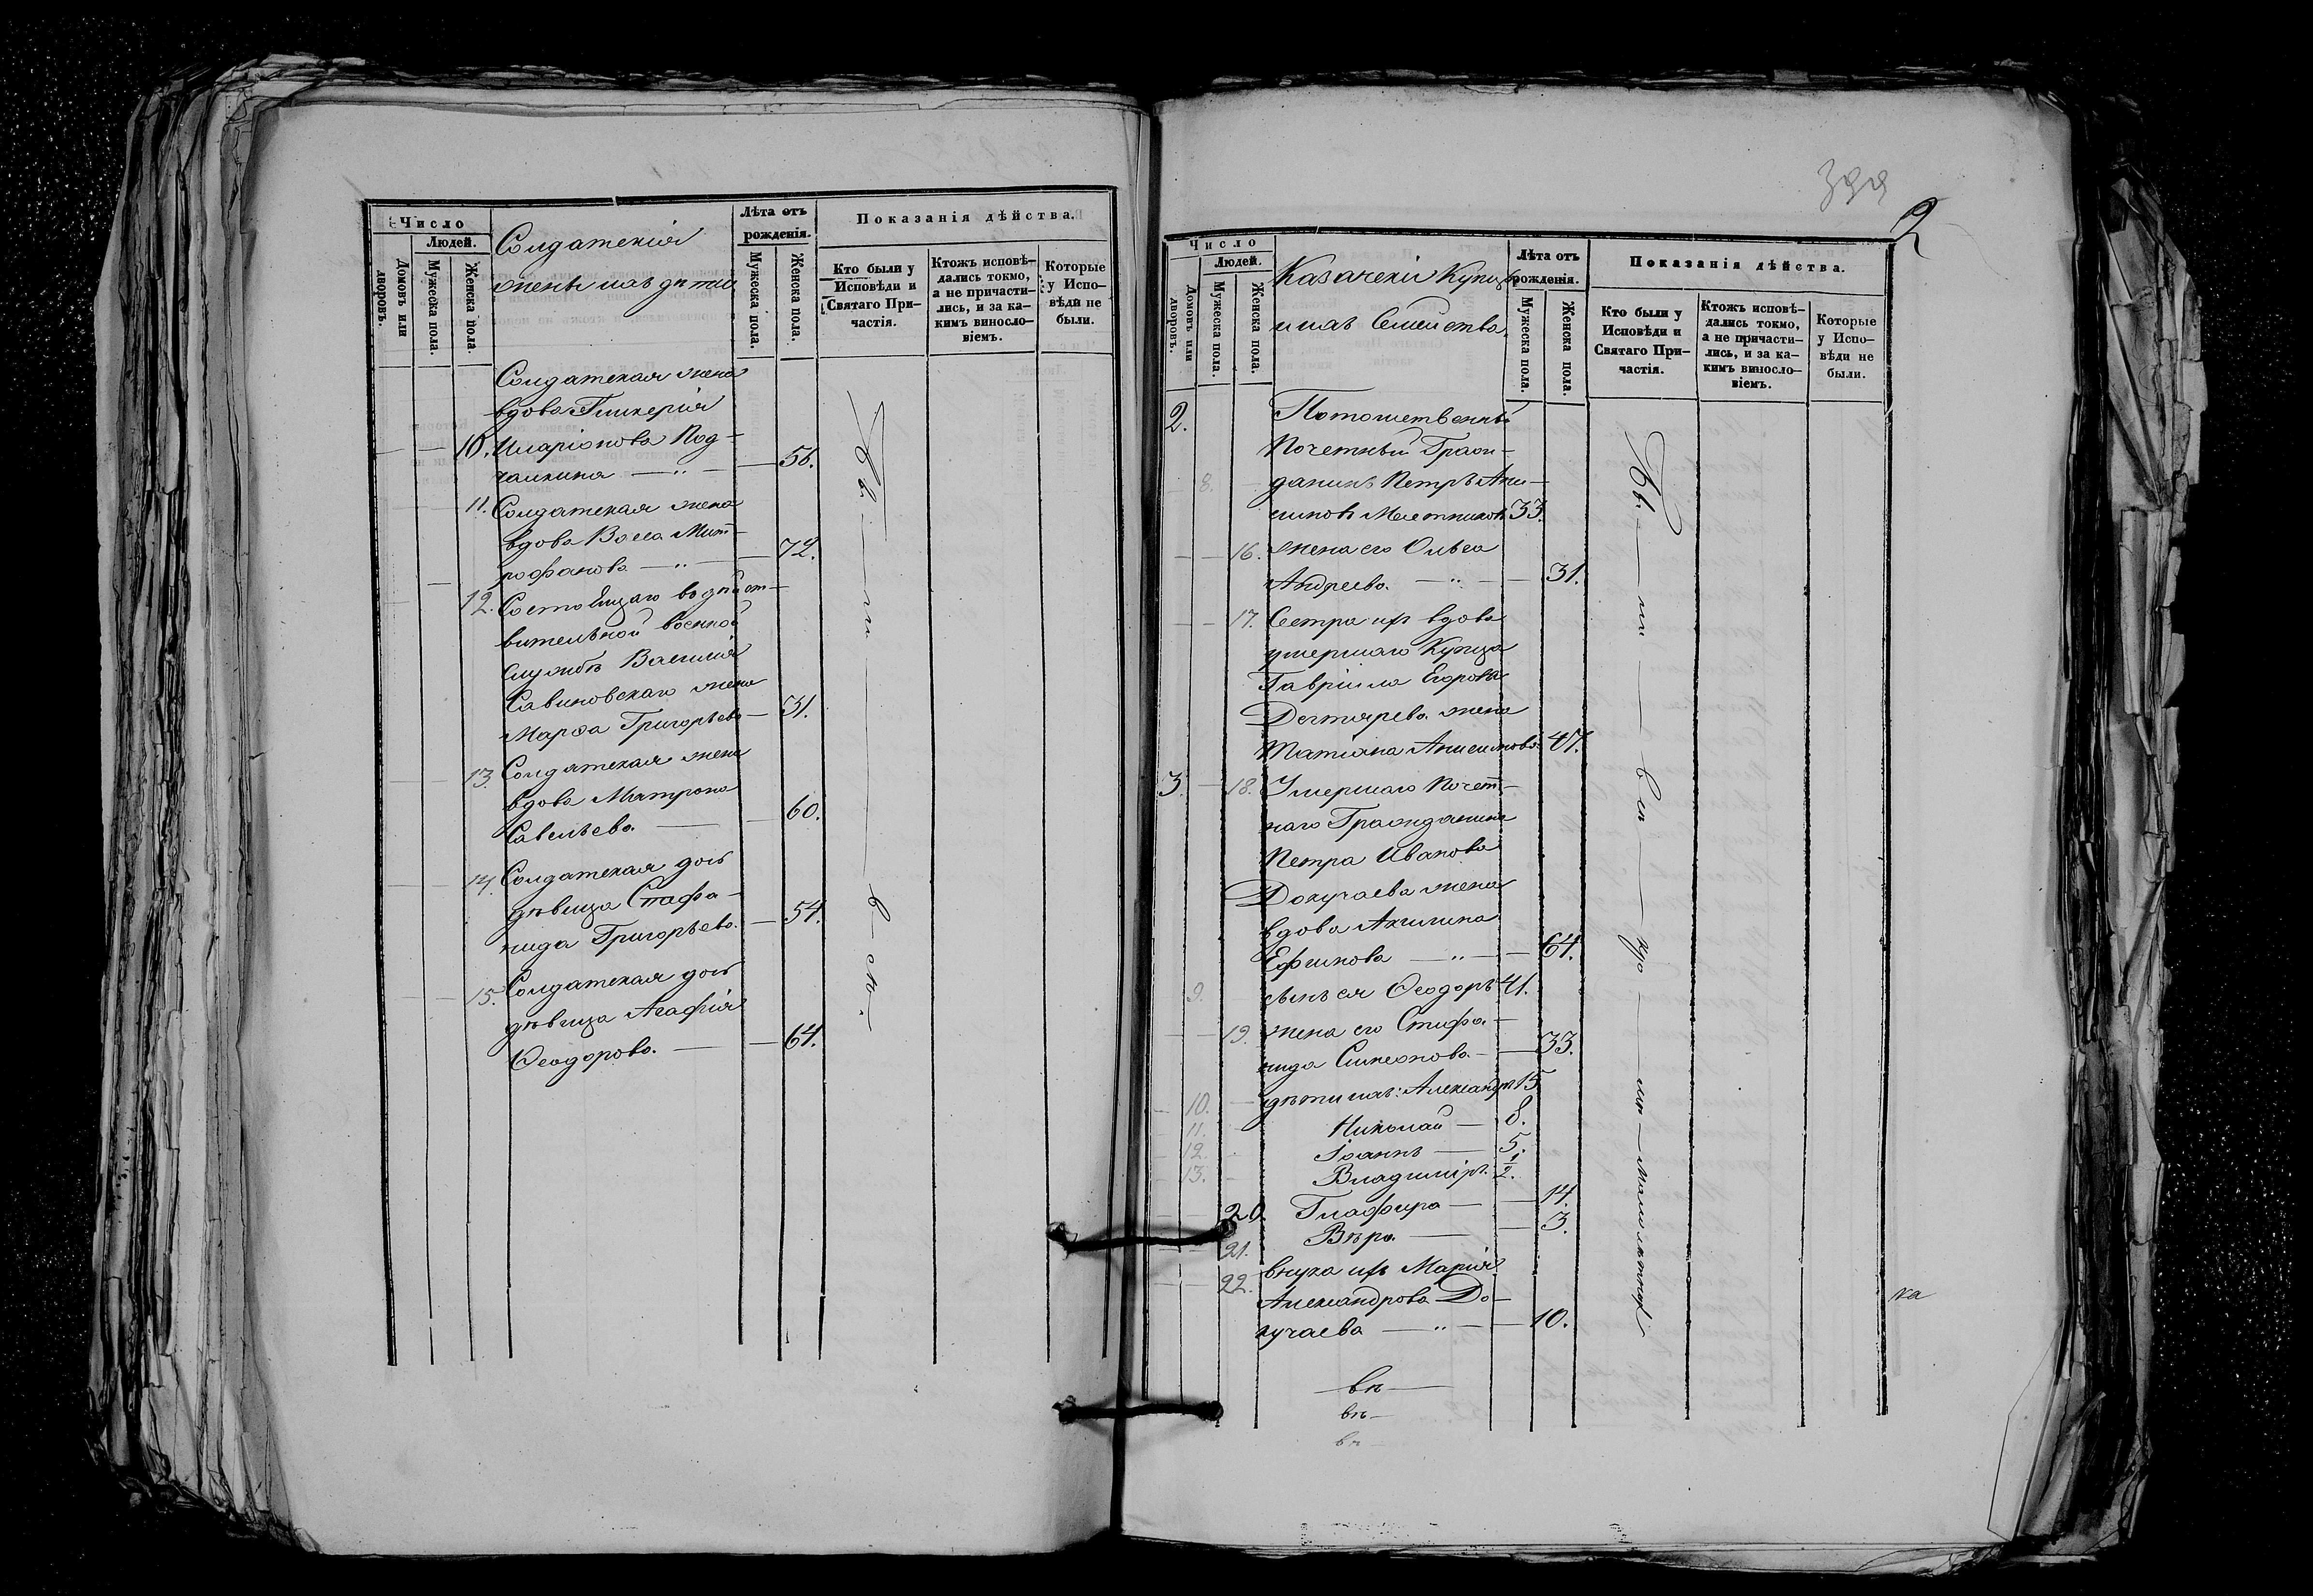 Число
Людей.
Домовъ или дворовъ.
Мужеска пола.
Женска пола.
Солдатскія
жены ихъ дѣти
Лѣта отъ
рожденія.
Мужеска пола.
Женска пола.
Показанія дѣйства.
Кто были у
Исповѣди и
Святаго При-
частія.
Ктожъ исповѣ-
дались токмо,
а не причасти-
лись, и за ка-
кимъ винosло-
віемъ.
Которые
у Испо-
вѣди не
были.
Солдатская жена
вдова Гликерія
10. Иларіонова Под-
— 56.
11. Солдатская жена
вдова Васса Мит-
рофанова — 72.
12. Состоящаго въ дѣйст-
вительной военной
службѣ Василія
Савиновскаго жена
Марѳа Григорьева — 31.
13. Солдатская жена
вдова Матрона
Савельева. — 60.
14. Солдатская дочь
дѣвица Стефа-
нида Григорьева. — 54.
15. Солдатская дочь
дѣвица Агафія
Ѳеодорова. — 64.
2
Число
Людей.
Домовъ или дворовъ.
Мужеска пола.
Женска пола.
Казачекіи Купцы
и ихъ Семейства
Лѣта отъ
рожденія.
Мужеска пола.
Женска пола.
Показанія дѣйства.
Кто были у
Исповѣди и
Святаго При-
частія.
Ктожъ исповѣ-
дались токмо,
а не причасти-
лись, и за ка-
кимъ винosло-
віемъ.
Которые
у Испо-
вѣди не
были.
2. Потомственный
Почетный Граж-
8. данинъ Петръ Ани-
симовъ Мелетниковъ 33.
16. жена его Ольга
Андреева. — 31.
17. Сестра ихъ вдова
умершаго Купца
Гавріила Егорова
Дегтярева жена
Татіана Анисимова 47.
3. 18. Умершаго Почет-
наго Гражданина
Петра Иванова
Докучаева жена
вдова Акилина
Ефимова — 64.
9. сынъ ея Ѳеодоръ 41.
19. жена его Стефа-
нида Симеонова — 33.
10. дѣти ихъ: Александръ 15
11. Николай — 8.
12. Іоаннъ — 5.
13. Владиміръ. 1/2.
20. Глафира — 14.
21. Вѣра. — 3.
22. внука ихъ Марія
Александрова До-
кучаева — 10.
вѣ
вѣ
вѣ
ка